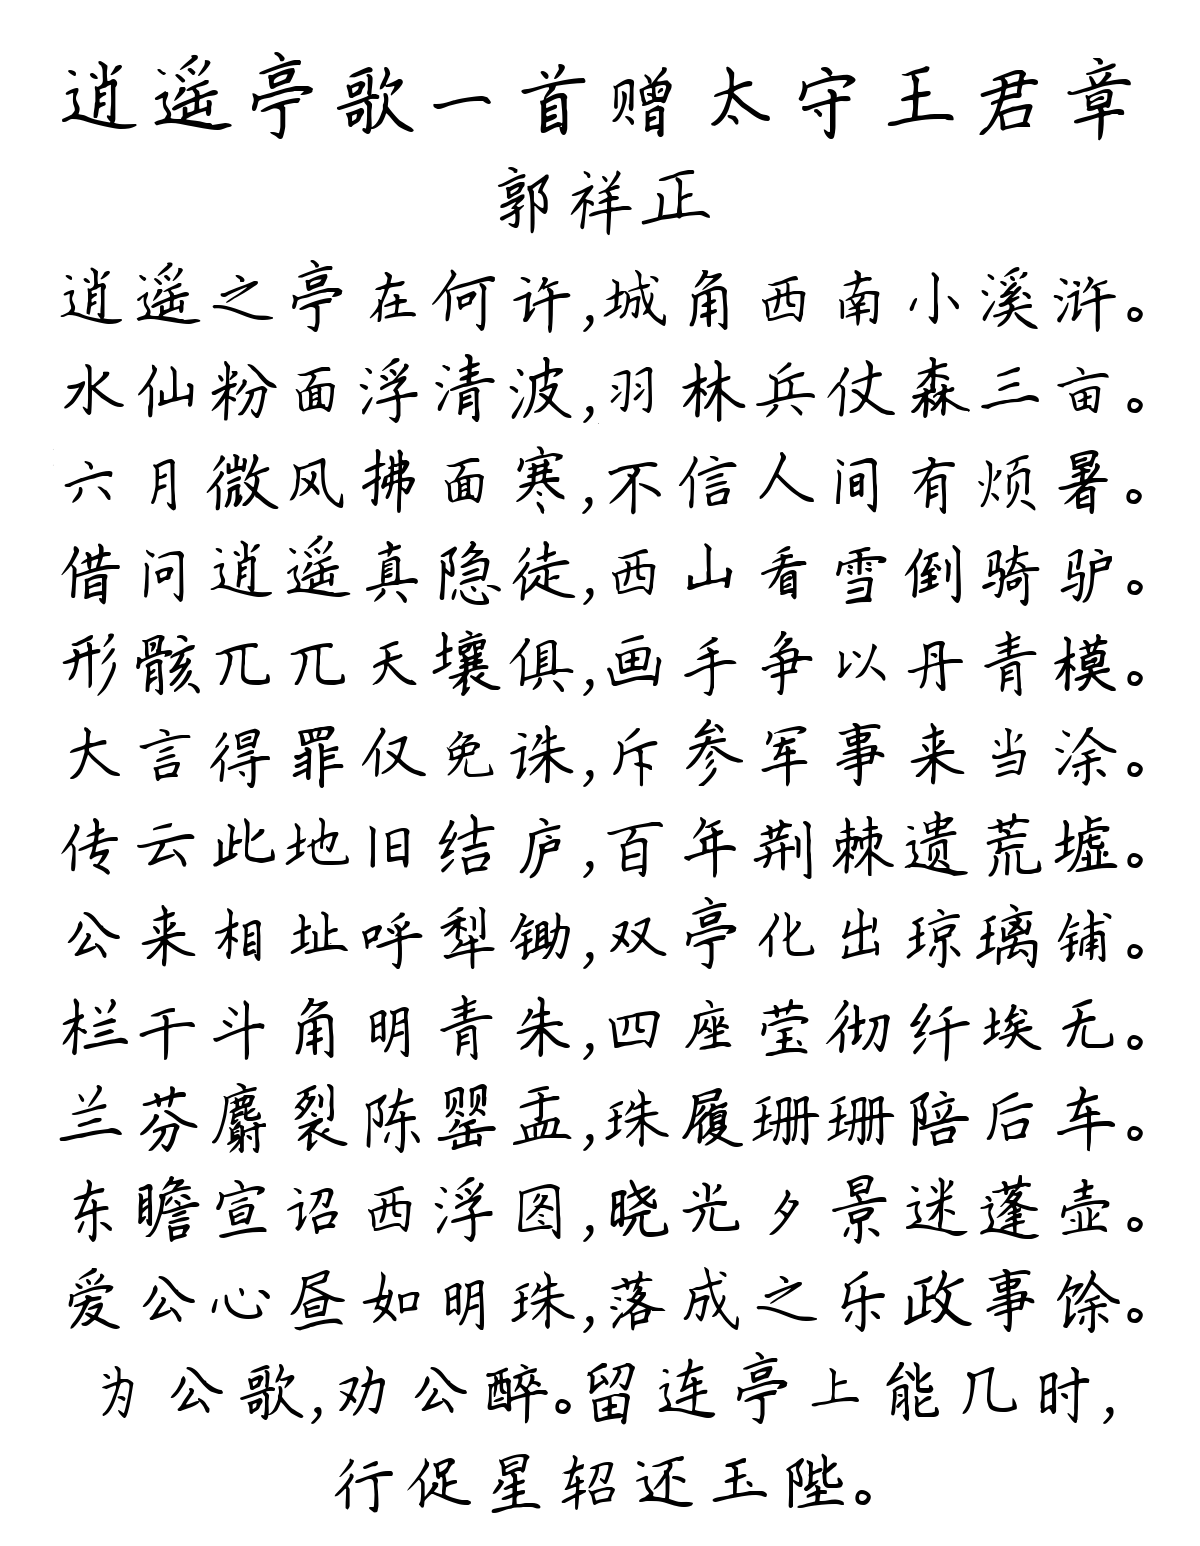 逍遥亭歌一首赠太守王君章
郭祥正
逍遥之亭在何许,城角西南小溪浒。
水仙粉面浮清波,羽林兵仗森三亩。
六月微风拂面寒,不信人间有烦暑。
借问逍遥真隐徒,西山看雪倒骑驴。
形骸兀兀天壤俱,画手争以丹青模。
大言得罪仅免诛,斥参军事来当涂。
传云此地旧结庐,百年荆棘遗荒墟。
公来相址呼犁锄,双亭化出琼璃铺。
栏干斗角明青朱,四座莹彻纤埃无。
兰芬麝裂陈罂盂,珠履珊珊陪后车。
东瞻宣诏西浮图,晓光夕景迷蓬壶。
爱公心昼如明珠,落成之乐政事馀。
为公歌,劝公醉。留连亭上能几时,
行促星轺还玉陛。